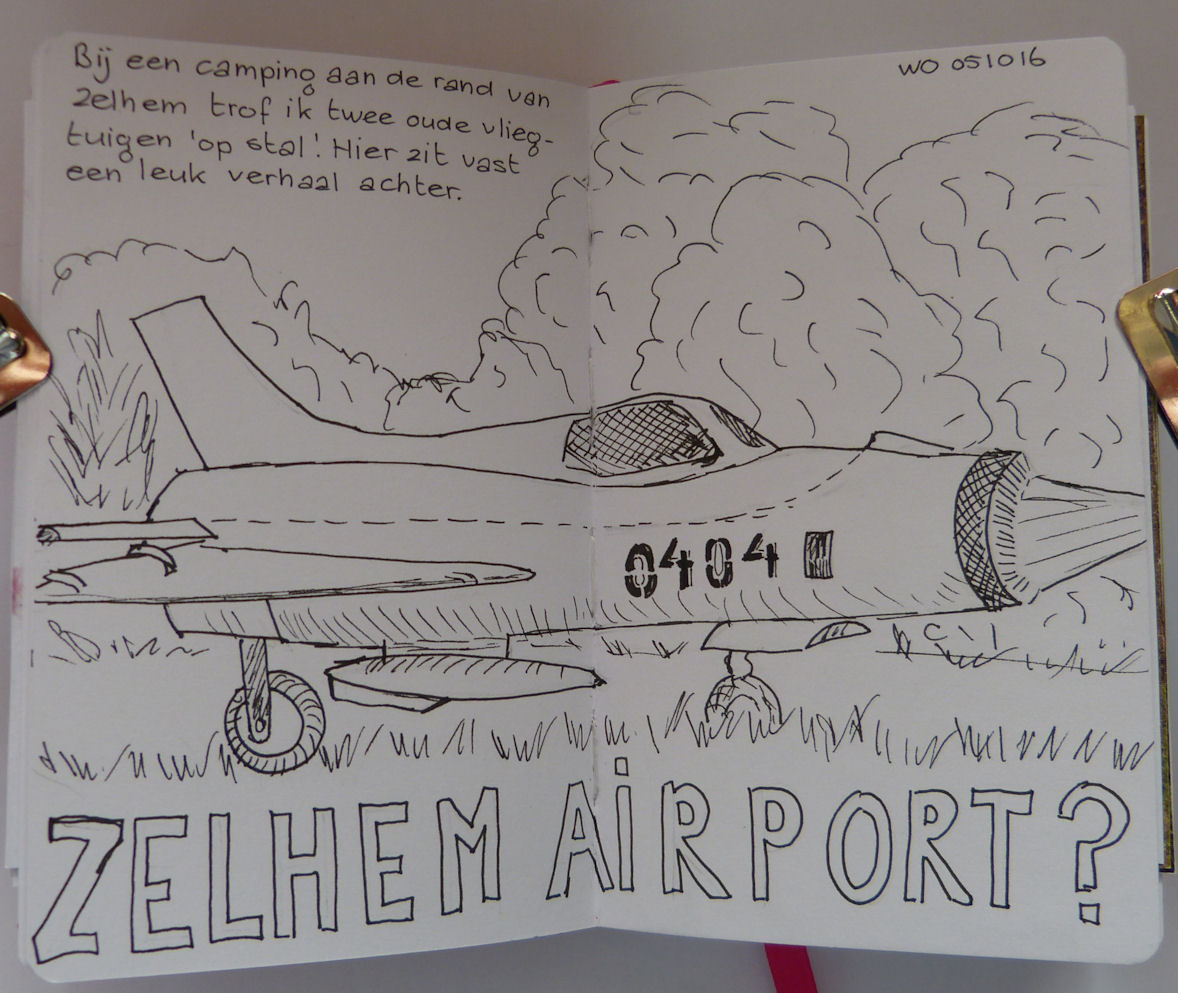 Bij een camping aan de rand van
Zelhem trof ik twee oude vlieg-
tuigen 'op stal'. Hier zit vast
een leuk verhaal achter.
WO 051016
0404
ZELHEM AiRPORT?